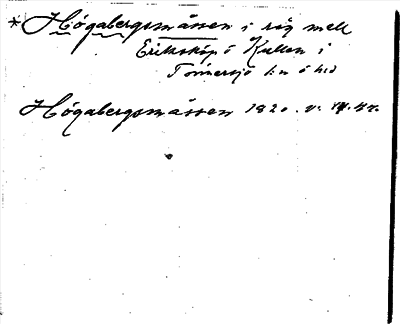 *Högabergsmåssen i råg mell
Eriksköp ö Kullen i
Tönnersjö s:n ö hd
Högabergsmåssen 1820. v.